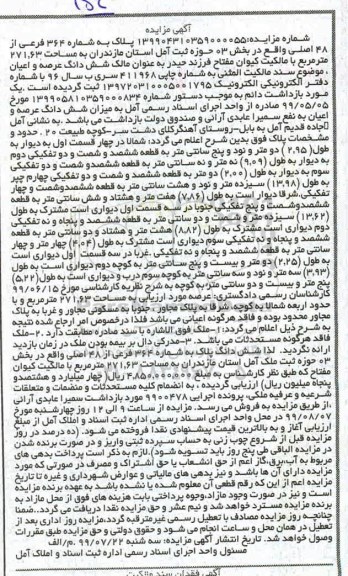 آگهی مزایده
شماره مزایده: ۱۳۹۹۰۴۳۱۰۳۵۹۰۰۰۰۵۵ پلاک به شماره ۳۶۴ فرعی از
۴۸ اصلی واقع در بخش ۰۳ حوزه ثبت آمل استان مازندران به مساحت ۲۷۱,۶۳
مترمربع با مالکیت کیوان مفتاح فرزند حیدر به عنوان مالک شش دانگ عرصه و اعیان
، موضوع سند مالکیت المثنی به شماره چاپی ۴۱۱۹۶۸ سری ب سال ۹۶ با شماره
دفتر الکترونیکی الکترونیک ثبت گردیده است .یک
مورد بازداشت دائم به موجب دستور شماره مورخ
۹۹/۰۵/۰۵ صادره از واحد اجرای اسناد رسمی آمل به میزان شش دانگ عرصه و
اعیان به نفع سمیرا عابدی آرانی و صندوق دولت بازداشت می باشد. به نشانی آمل
جاده قدیم آمل به بابل-روستای آهنگرکلای دشت سر-کوچه طبیعت ۲۰ . حدود و
مشخصات پلاک فوق بدین شرح اعلام می گردد؛ شمالا در چهار قسمت اول به دیوار به
طول (۲,۹۵) دو متر و نود و پنج سانتی متر به قطعه ششصد و شصت و دو تفکیکی دوم
به دیوار به طول (۹,۰۹) نه متر و نه سانتی متر به قطعه ششصدو شصت و دو تفکیکی
سوم به دیوار به طول (۲,۰۰) دو متر به قطعه ششصد و شصت و دو تفکیکی چهارم چپر
به طول (۱۳,۹۸) سیزده متر و نود و هشت سانتی متر به قطعه ششصدوشصت و چهار
تفکیکی.شرقا دیوار است به طول (۷,۸۶) هفت متر و هشتاد و شش سانتی متر به قطعه
ششصدوشصت و پنج تفکیکی جنوبا در سه قسمت اول دیواری است مشترک به طول
(۱۳,۶۲) سیزده متر و شصت و دو سانتی متر به قطعه ششصد و پنجاه و نه تفکیکی
دوم دیواری است مشترک به طول (۸,۸۲) هشت متر و هشتاد و دو سانتی متر به قطعه
ششصد و پنجاه و نه تفکیکی سوم دیواری است مشترک به طول (۴,۰۴) چهار متر و چهار
سانتی متر به قطعه ششصد و پنجاه و نه تفکیکی .غربا در سه قسمت اول دیواری است
به طول (۲,۲۵) دو متر و بیست و پنج سانتی متر به کوچه دوم دیواری است به طول
(۳,۹۳) سه متر و نود و سه سانتی متر به کوچه سوم درب و دیواری است به طول(۵,۲۲)
پنج متر و بیست و دو سانتی متر به کوچه به شرح نظریه کارشناسی مورخ ۹۹/۰۶/۱۵
کارشناسان رسمی دادگستری: عرصه مورد ارزیابی به مساحت ۲۷۱,۶۳ مترمربع و با
حدود اربعه شمالا به کوچه، شرقا به پلاک مجاور ، جنوبا به مسکونی مجاور و غربا به پلاک
مجاور محدود بوده و فاقد هرگونه اعیانی می باشد فلذا درخصوص امر ارجاع شده نتیجه
به شرح ذیل اعلام می گردد: ۱-ملک فوق الاشاره با سند مصوره مطابقت دارد .۲-ملک
فاقد هرگونه مستحدثات می باشد. ۳-مدرکی دال بر بیمه بودن ملک در زمان بازدید
ارائه نگردید. لذا شش دانگ پلاک به شماره ۳۶۴ فرعی از ۴۸ اصلی واقع در بخش
۰۳ حوزه ثبت ملک آمل استان مازندران به مساحت ۲۷۱,۶۳ مترمربع با مالکیت کیوان
مفتاح که طبق نظر کارشناس به مبلغ ۴.۸۵۰.۰۰۰.۰۰۰ ریال( چهار میلیارد و هشتصدو
پنجاه میلیون ریال) ارزیابی گردیده ، به انضمام کلیه مستحدثات و منضمات و متعلقات
شرعیه و عرفیه ملکی، پرونده اجرایی ۹۹۰۰۴۷۸ مورد بازداشت سمیرا عابدی آرانی
،از طریق مزایده به فروش می رسد. مزایده از ساعت ۹ الی ۱۲ روز چهارشنبه مورخ
۹۹/۰۸/۰۷ در محل واحد اجرای اسناد رسمی اداره ثبت اسناد و املاک آمل از مبلغ
ارزیابی آغاز و به بالاترین قیمت پیشنهادی نقدا فروخته می شود. (ده درصد در روز
مزایده قبل از شروع چوب زنی به حساب سپرده ثبتی واریز و در صورت برنده شدن
در مزایده الباقی طی پنج روز باید تسویه شود). لازم به ذکر است پرداخت بدهی های
مربوط به آب،برق،گاز اعم از حق انشعاب یا حق اشتراک و مصرف در صورتی که مورد
مزایده دارای آن ها باشد و نیز بدهی های مالیاتی و عوارض شهرداری و غیره تا تاریخ
مزایده اعم از این که رقم قطعی آن معلوم شده یا نشده باشد به عهده برنده مزایده
است و نیز در صورت وجود مازاد،وجوه پرداختی بابت هزینه های فوق از محل مازاد به
برنده مزایده مسترد خواهد شد و نیم عشر و حق مزایده نقدا دریافت می گردد..ضمنا
چنانچه روز مزایده مصادف با تعطیل رسمی غیرمترقبه گردد،مزایده روز اداری بعد از
تعطیل در همان محل و ساعت انجام می شود و حقوق دولتی و حق مزایده طبق مقررات
وصول خواهد شد. تاریخ انتشار آگهی مزایده: سه شنبه ۹۹/۰۷/۲۲ .م/الف
مسئول واحد اجرای اسناد رسمی اداره ثبت اسناد و املاک آمل
آگهی فقدان سند مالکیت